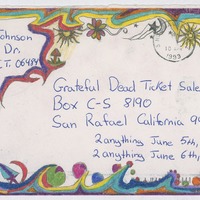 Johnson
Dr.
CT. 06484
1993
Grateful Dead Ticket Sale
Box C-S 8190
San Rafael California 9
2 anything June 5th,
2 anything June 6th,